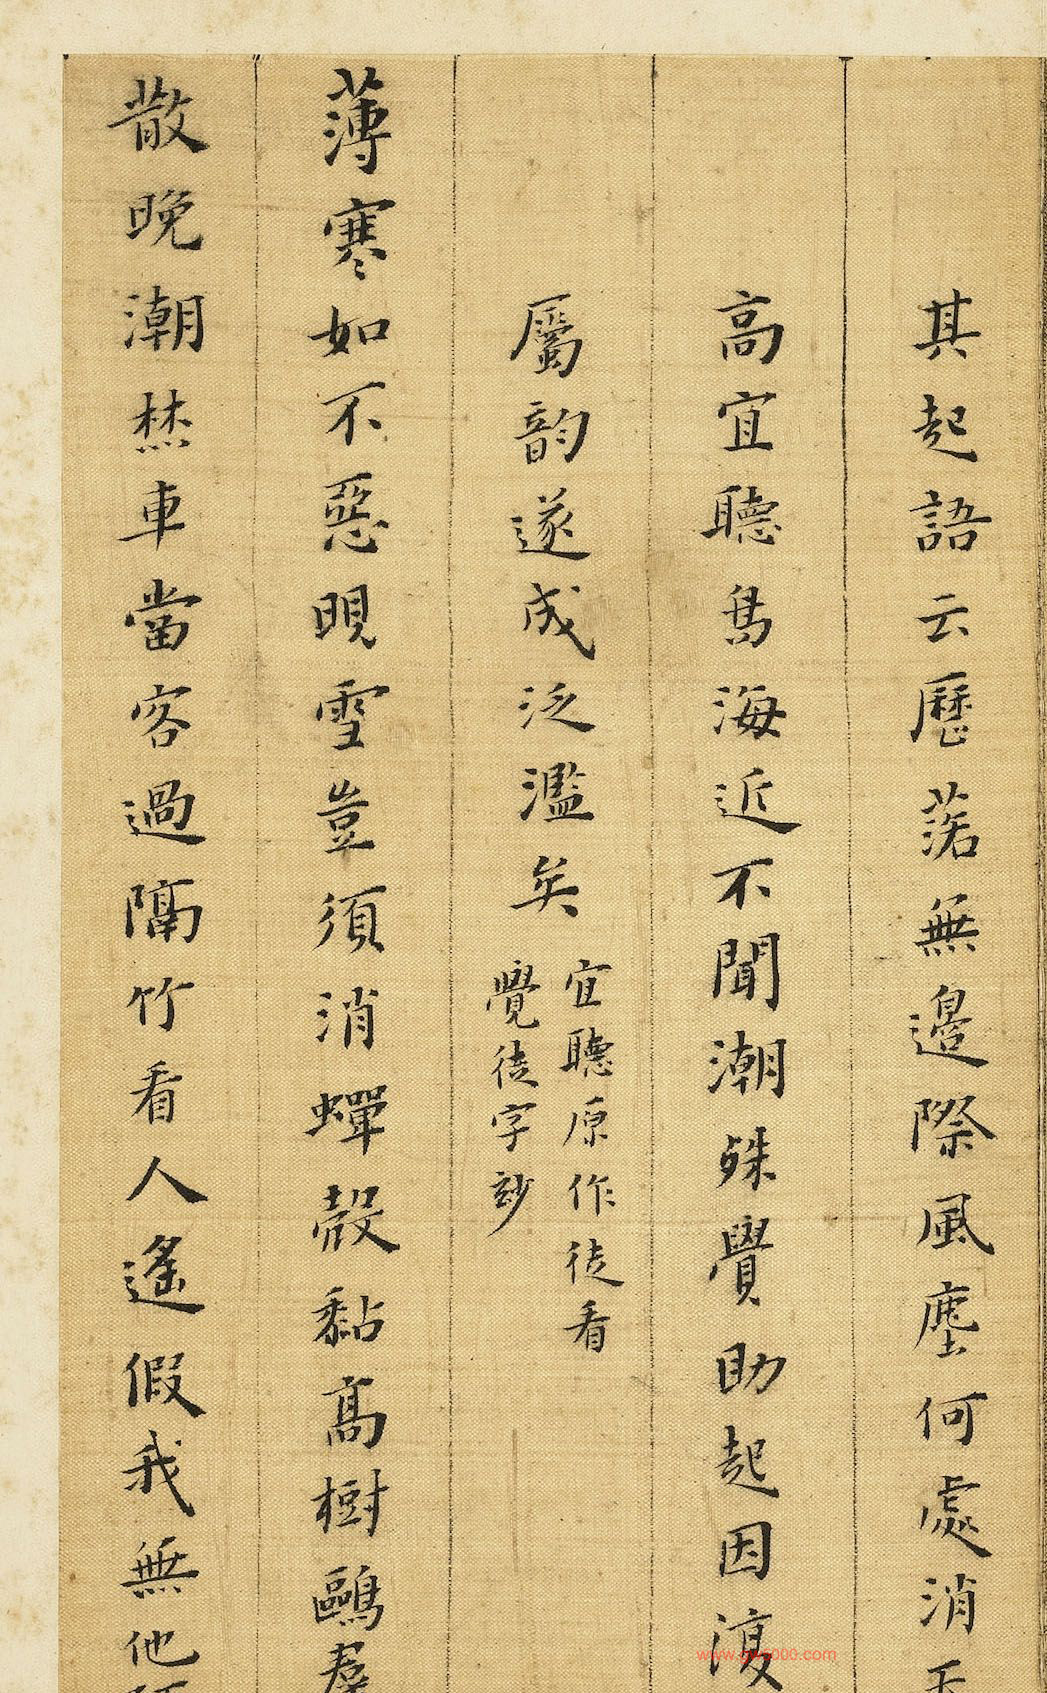 其起語云歷落無邊際風塵何處消
高宜聽鳥海近不聞潮殊覺助起因復
屬韵遂成泛濫矣
宜聽原作徒看
覺徒字玅
薄寒如不惡晛雪豈須消蟬殼黏高樹鷗羣
散晚潮焚車當客過隔竹看人遙假我無他
www.gws000.com